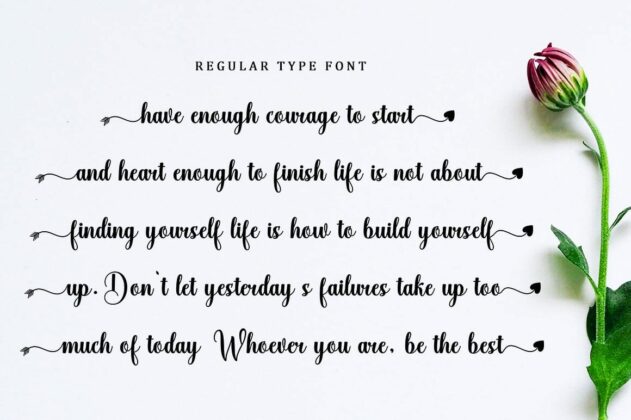 REGULAR TYPE FONT
have enough courage to start
and heart enough to finish life is not about
finding yourself life is how to build yourself
up. Don`t let yesterday s failures take up too
much of today Whoever you are, be the best